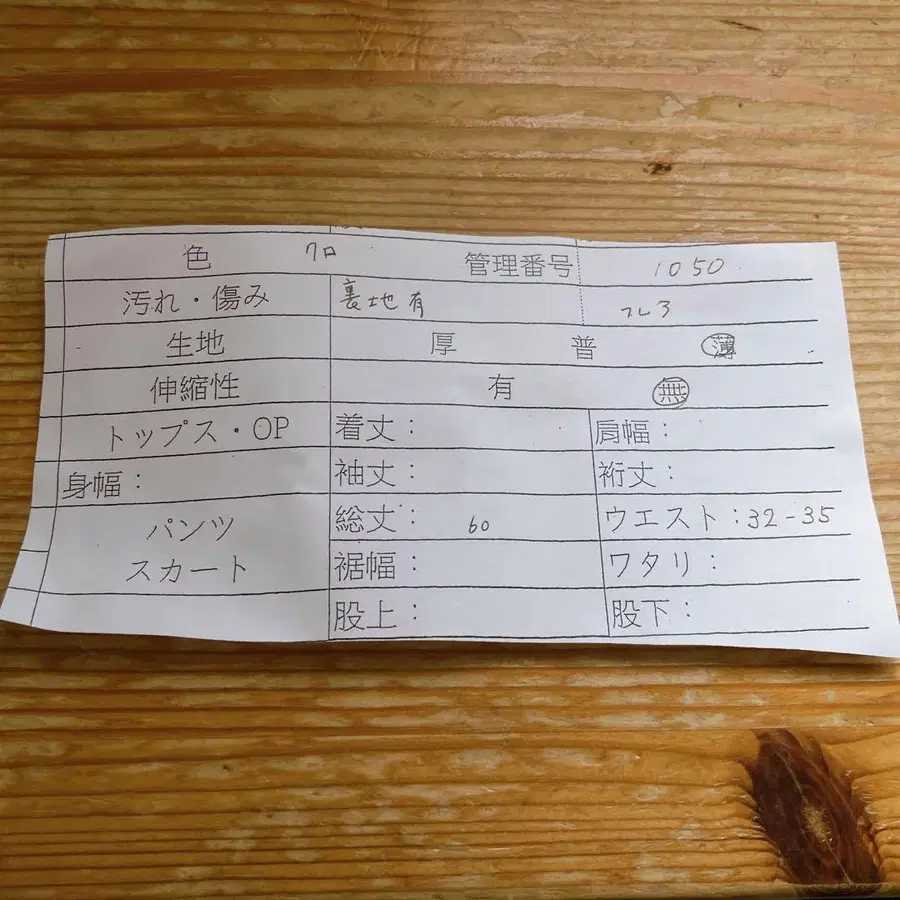 色 クロ 管理番号 1050
汚れ・傷み 裏地有 フレ3
生地 厚 普 薄
伸縮性 有 無
トップス・OP 着丈： 肩幅：
身幅： 袖丈： 裄丈：
パンツ 総丈： 60 ウエスト：32-35
スカート 裾幅： ワタリ：
股上： 股下：